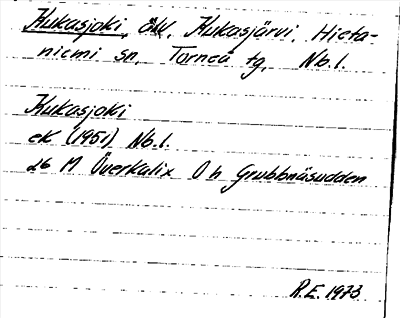 Kukasjoki, älv, Kukasjärvi, Hieta-
niemi sn, Torneå tg, Nb.l.
Kukasjoki
ek (1951) Nb.l.
26 M Överkalix O h Grubbnäsudden
R.E. 1973